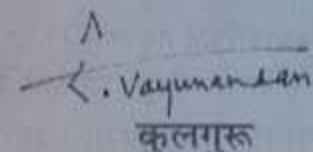 Vayunandan
कुलगुरू